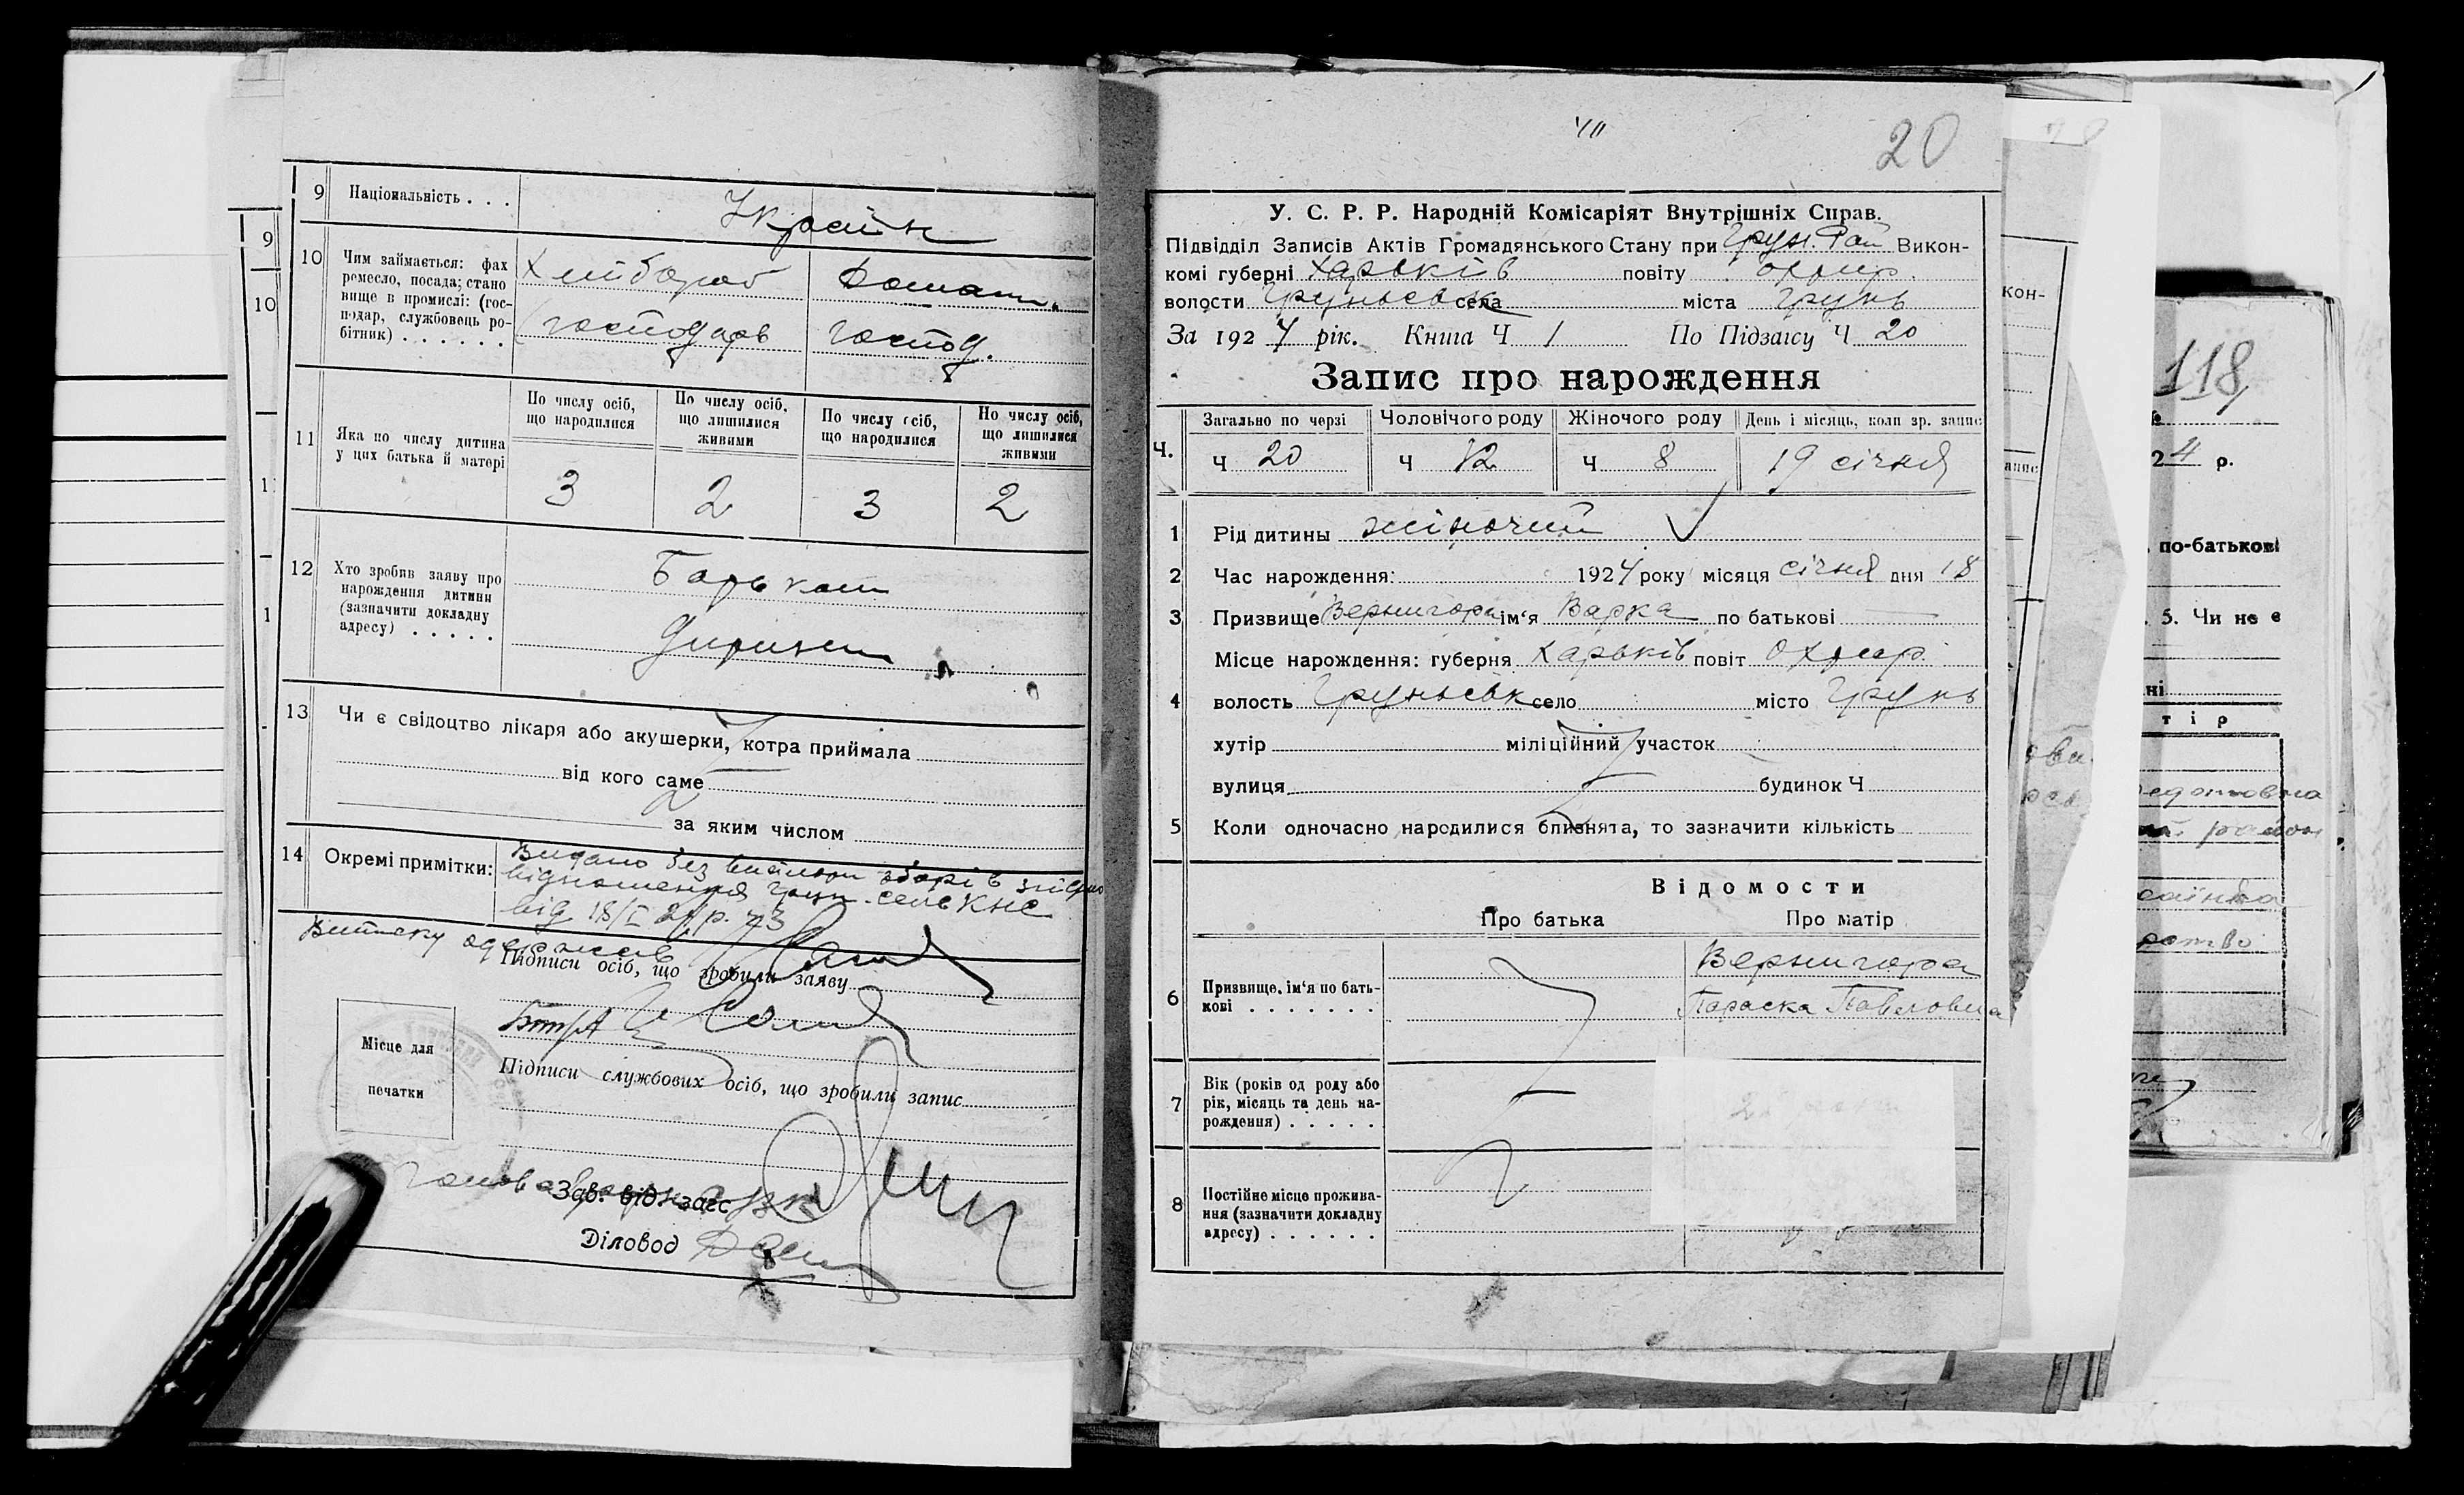 9 Національність . . .
Україн
10 Чим займається: фах
ремесло, посада; стано
вище в промислі: (гос-
подар, службовець ро-
бітник) . . . . . .
Хлібороб
господарь
Домашн.
господ.
11 Яка по числу дитина
у цих батька й матері
По числу осіб,
що народилися
3
По числу осіб,
що лишилися
живими
2
По числу осіб,
що народилися
3
Но числу осіб,
що лишилися
живими
2
12 Хто зробив заяву про
нарождення дитини
(зазначити докладну
адресу) . . . . .
Батько
13 Чи є свідоцтво лікаря або акушерки, котра приймала
від кого саме
за яким числом
14 Окремі примітки:
Видано без
від 18/I 24 р. 73
Виписку одержав
Підписи осіб, що зробили заяву
Підписи службових осіб, що зробили запис
Місце для
печатки
Зав. від. загс
Діловод
20
У. С. Р. Р. Народній Комісаріят Внутрішніх Справ.
Підвідділ Записів Актів Громадянського Стану при Грун. Рай Викон-
комі губерні Харьків повіту охтир.
волости Груньськ села міста Грунь
За 1924 рік. Книга Ч 1 По Підзагсу Ч 20
Запис про нарождення
Загально по черзі Чоловічого роду Жіночого роду День і місяць, коли зр. запис
Ч. Ч 20 Ч 12 Ч 8 19 січня
1 Рід дитины жіночий
2 Час нарождення: 1924 року місяця січня дня 18
3 Призвище Вернигора ім'я Варка по батькові
Місце нарождення: губерня Харьків повіт Охтир.
4 волость Груньськ село місто Грунь
хутір міліційний участок
вулиця будинок Ч
5 Коли одночасно народилися близнята, то зазначити кількість
Відомости
Про батька Про матір
6 Призвище, ім'я по бать-
кові . . . . . . .
Вернигора
Параска Павловна
7 Вік (років од роду або
рік, місяць та день на-
рождення) . . . . .
8 Постійне місце прожива-
ння (зазначити докладну
адресу) . . . . . .
кон-
118
24 р.
по-батькові
5. Чи не є
ні
тір
район